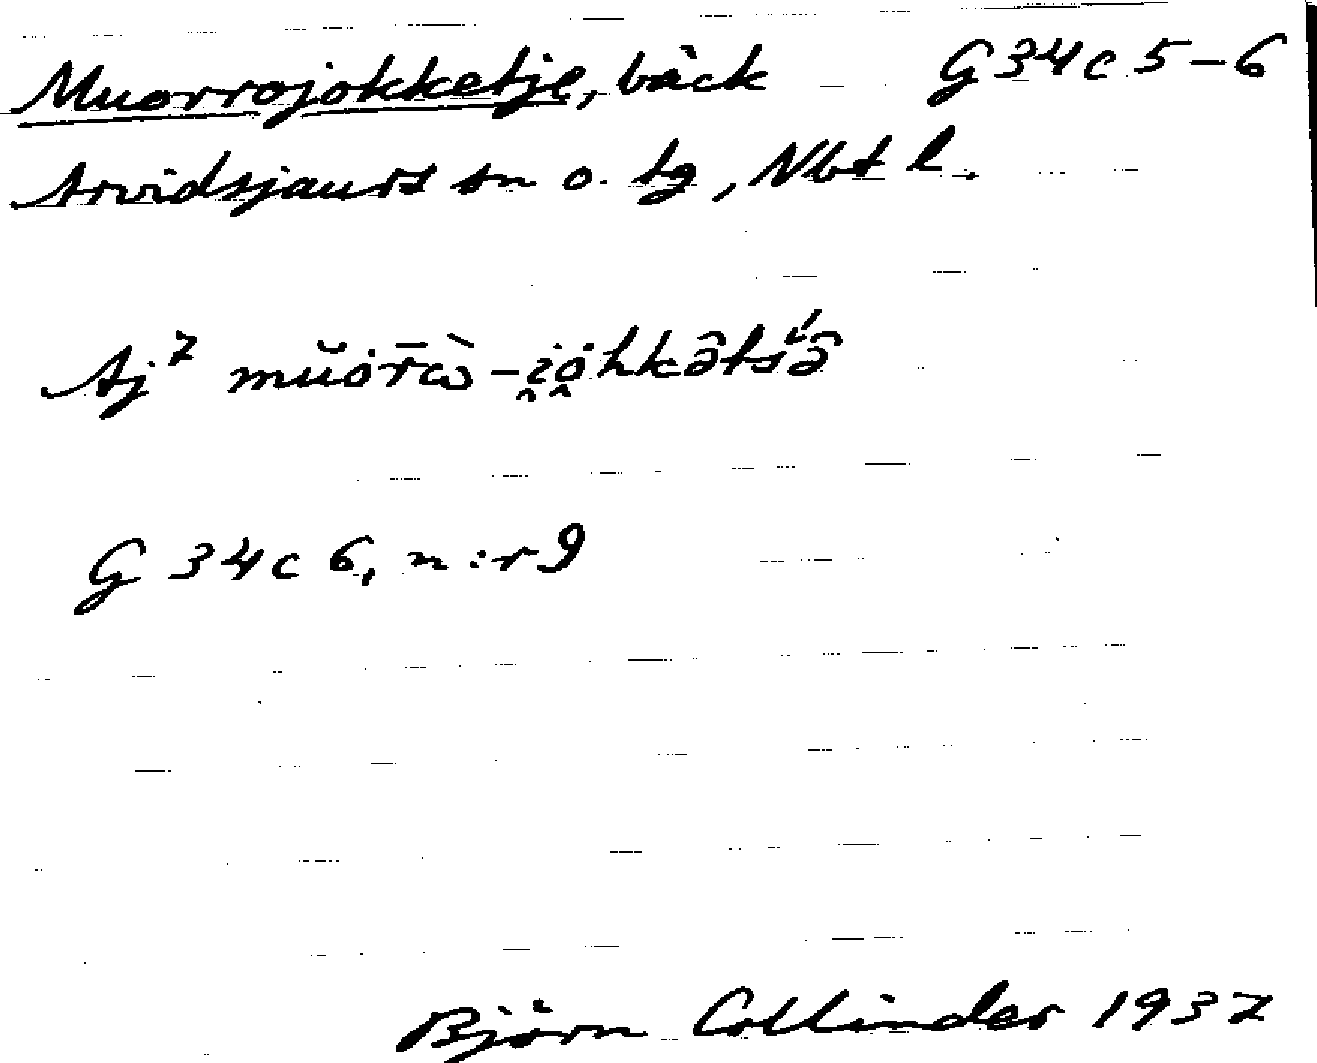 Muorrojokketje, bäck G34c 5-6
Arvidsjaurs sn o. tg, Nbt l.
Aj7 mŭȯr̄ὼ-i̭o̭hkə̂tśə̂
G 34c 6, n:r 9
Björn Collinder 1937